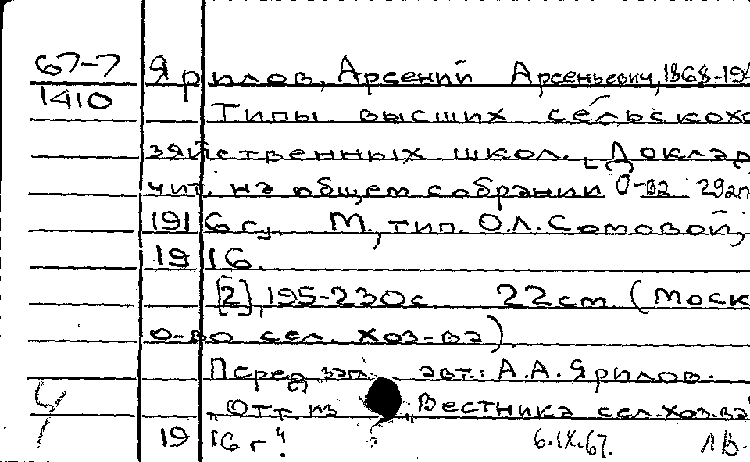 67-7
1410
Ярилов, Арсений Арсеньевич, 1868-19
Типы высших сельскохо
зяйственных школ. [Доклад,
чит. на общем собрании О-ва 29 ап
1916 г.]. М., тип. О.Л. Сомовой,
1916.
[2], 195-230 с. 22 см. (Моск
о-во сел. хоз-ва).
Перед загл. авт.: А.А. Ярилов.
Отт. из „Вестника сел. хоз-ва"
1916 г".
6.IX.67.